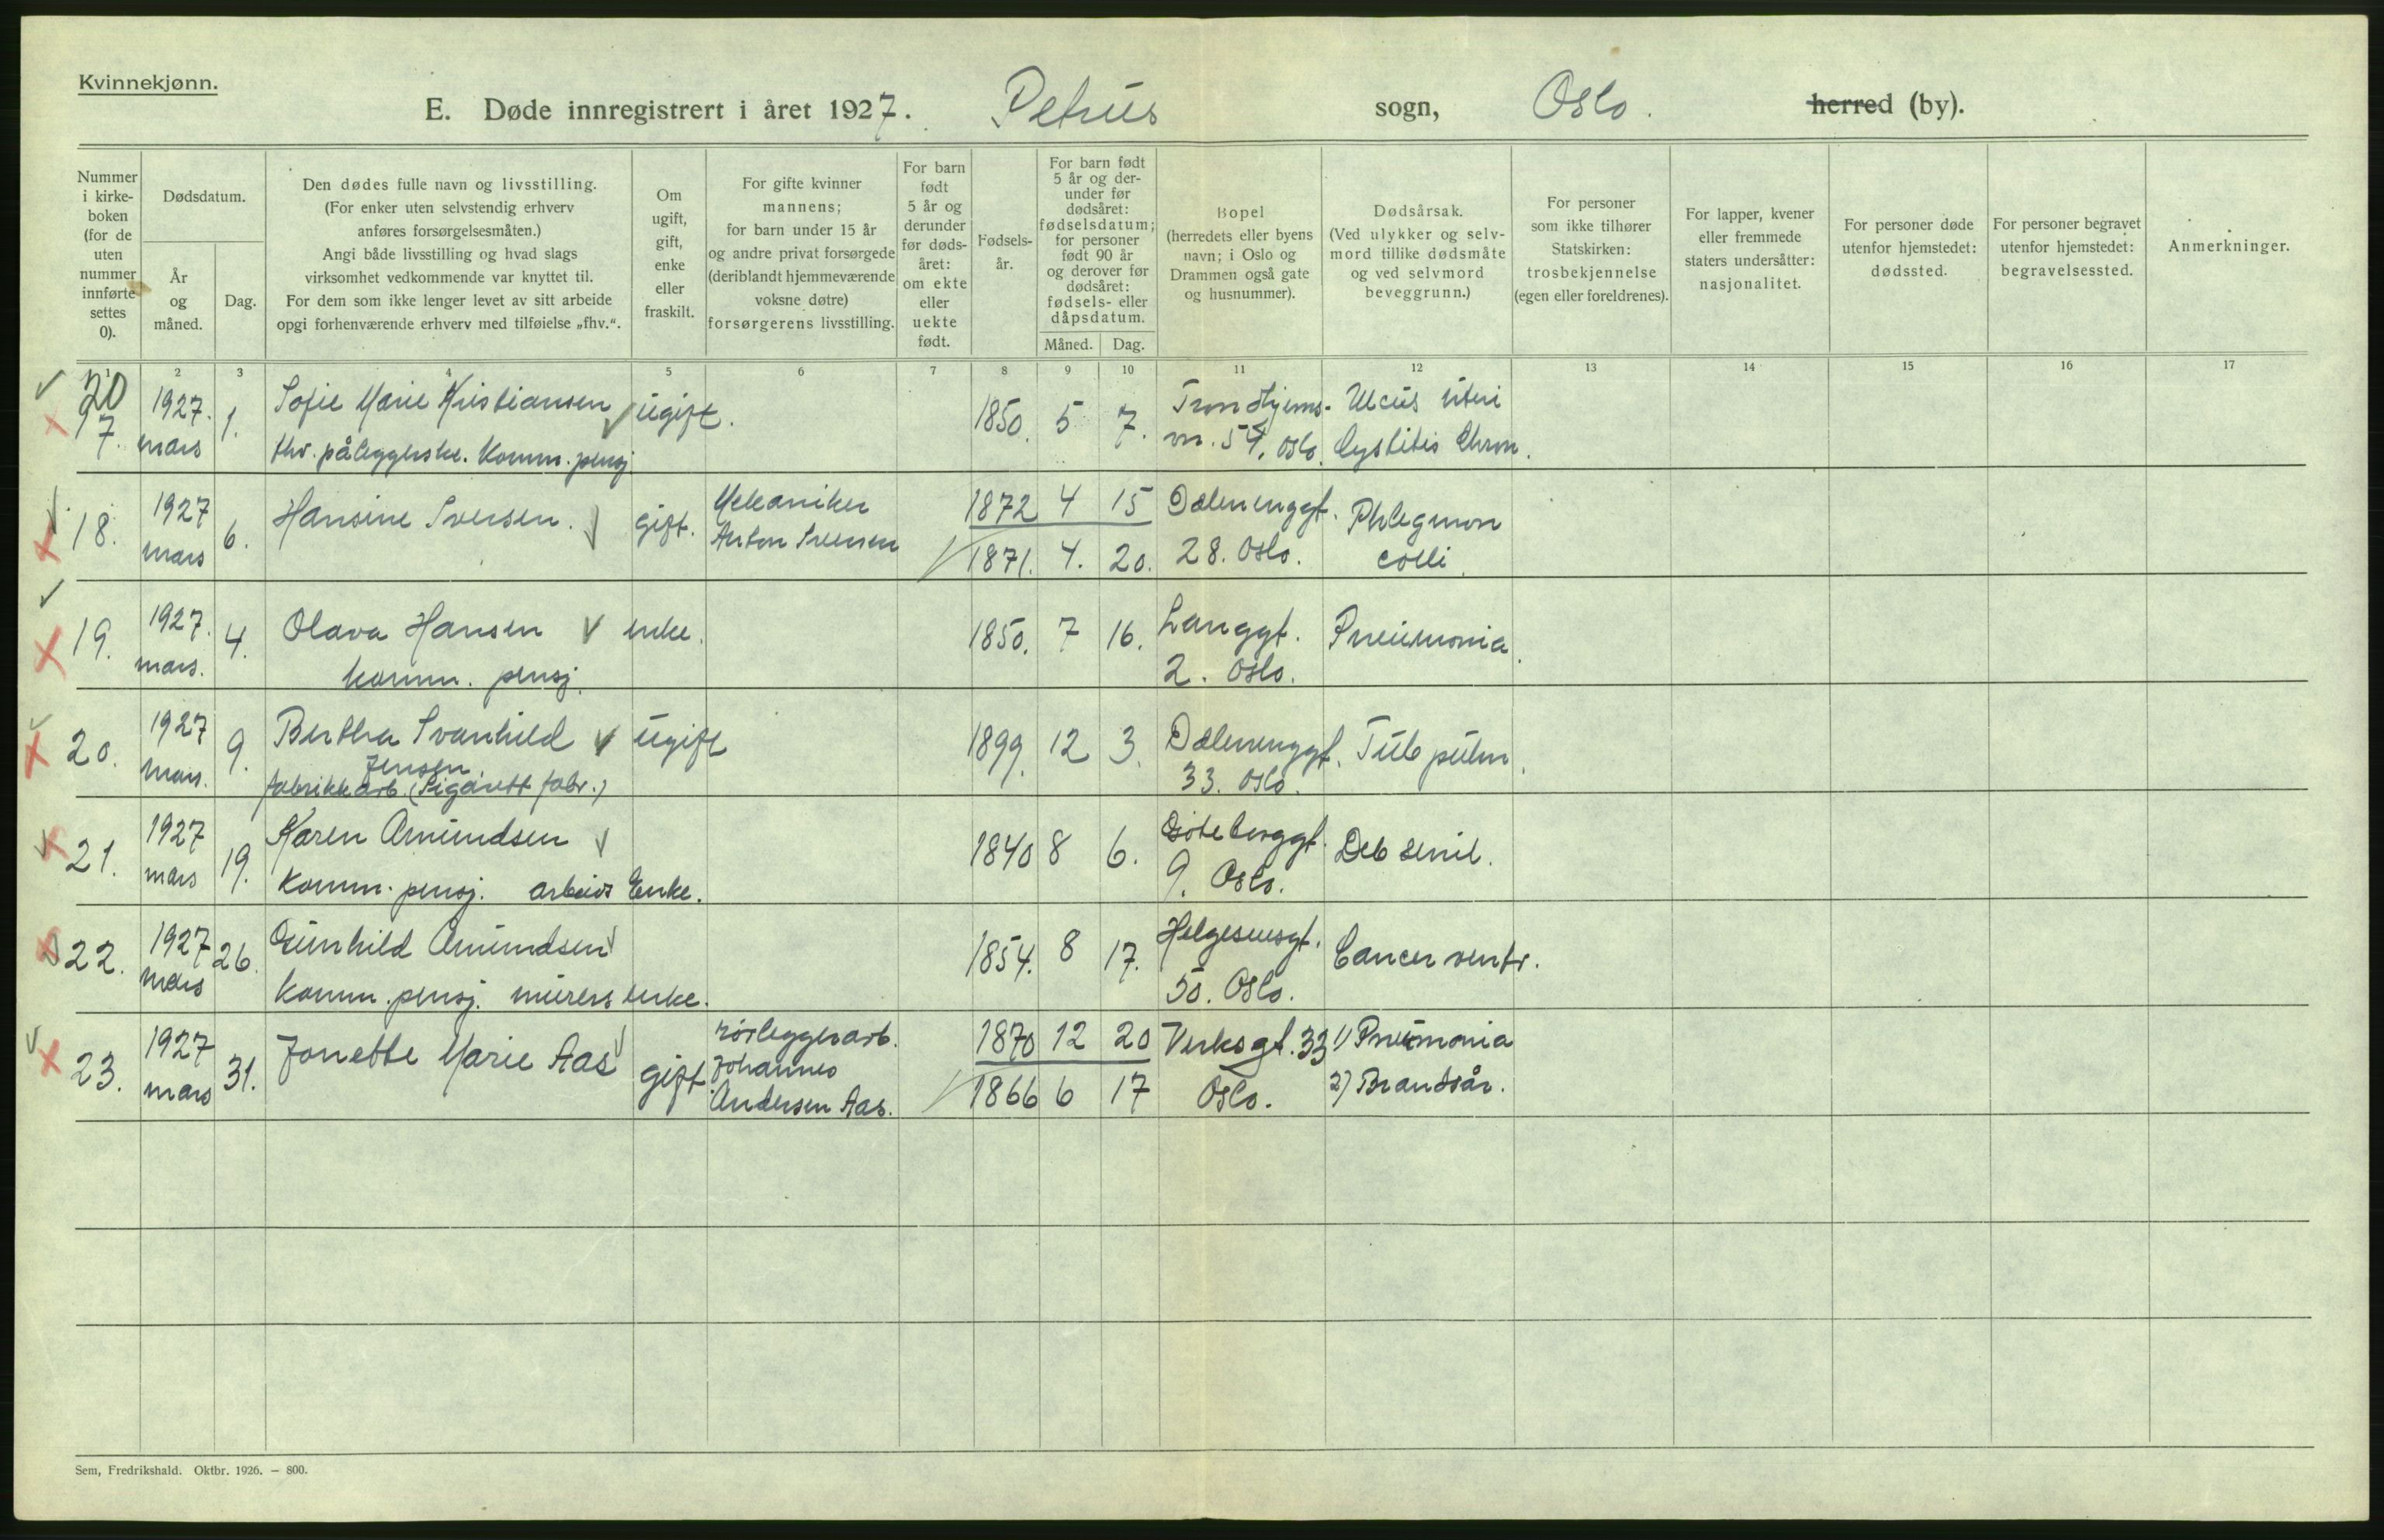 Kvinnekjønn.
E. Døde innregistrert i året 1927. Petrus sogn, Oslo. herred (by).
Nummer i kirke-boken (for de uten nummer innførte settes 0).
Dødsdatum.
År og måned.
Dag.
Den dødes fulle navn og livsstilling.
(For enker uten selvstendig erhverv
anføres forsørgelsesmåten.)
Angi både livsstilling og hvad slags
virksomhet vedkommende var knyttet til.
For dem som ikke lenger levet av sitt arbeide
opgi forhenværende erhverv med tilføielse „fhv.“.
Om ugift, gift, enke eller fraskilt.
For gifte kvinner
mannens;
for barn under 15 år
og andre privat forsørgede
(deriblandt hjemmeværende
voksne døtre)
forsørgerens livsstilling.
For barn født 5 år og derunder før døds-året: om ekte eller uekte født.
Fødsels-år.
For barn født 5 år og der-under før dødsåret: fødselsdatum; for personer født 90 år og derover før dødsåret: fødsels- eller dåpsdatum.
Måned.
Dag.
Bopel
(herredets eller byens
navn; i Oslo og
Drammen også gate
og husnummer).
Dødsårsak.
(Ved ulykker og selv-
mord tillike dødsmåte
og ved selvmord
beveggrunn.)
For personer
som ikke tilhører
Statskirken:
trosbekjennelse
(egen eller foreldrenes).
For lapper, kvener
eller fremmede
staters undersåtter:
nasjonalitet.
For personer døde
utenfor hjemstedet:
dødssted.
For personer begravet
utenfor hjemstedet:
begravelsessted.
Anmerkninger.
1 2 3 4 5 6 7 8 9 10 11 12 13 14 15 16 17
20
17. 1927. mars 1. Sofie Marie Kristiansen ugift. 1850. 5 7. Trondhjems- Ulcus Uteri
fhv. påleggerske. Komm. pensj vn. 54, Oslo. Cystitis Chron.
18. 1927 mars 6. Hansine Iversen. gift. Mekaniker 1872 4 15 Dælenenggt. Phlegmon
Anton Iversen 1871. 4. 20. 28. Oslo. colli.
19. 1927. mars. 4. Olava Hansen enke. 1850. 7 16. Langgt. Pneumonia.
Komm. pensj. 2. Oslo.
20. 1927 mars. 9. Bertha Svanhild ugift 1899. 12 3. Dælenenggt. Tub pulm.
Jensen 33. Oslo.
fabrikkarb. (Sigarett fabr.)
21. 1927 mars 19. Karen Amundsen 1840 8 6. Gøteborggt. Deb senil.
Komm. pensj. arbeids Enke. 9. Oslo.
22. 1927 mars 26. Gunhild Amundsen 1854. 8 17. Helgesensgt. Cancer ventr.
Komm. pensj. murers enke. 50. Oslo.
23. 1927 mars 31. Jonette Marie Aas gift. rørleggerarb. 1870 12 20 Verksgt. 33 1) Pneumonia
Johannes
Andersen Aas. 1866 6 17 Oslo. 2) Brandsår.
Sem, Fredrikshald. Oktbr. 1926. — 800.